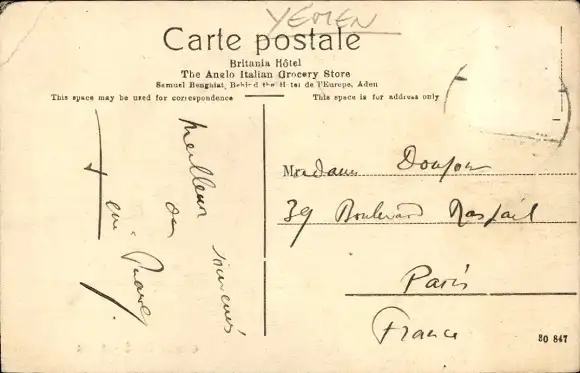 YEMEN
Carte postale
Britania Hôtel
The Anglo Italian Grocery Store
Samuel Benghiat, Behind the Hotel de l'Europe, Aden
This space may be used for correspondence
This space is for address only
Meilleur
souvenir
Madame
39 Boulevard Raspail
Paris
France
80 847